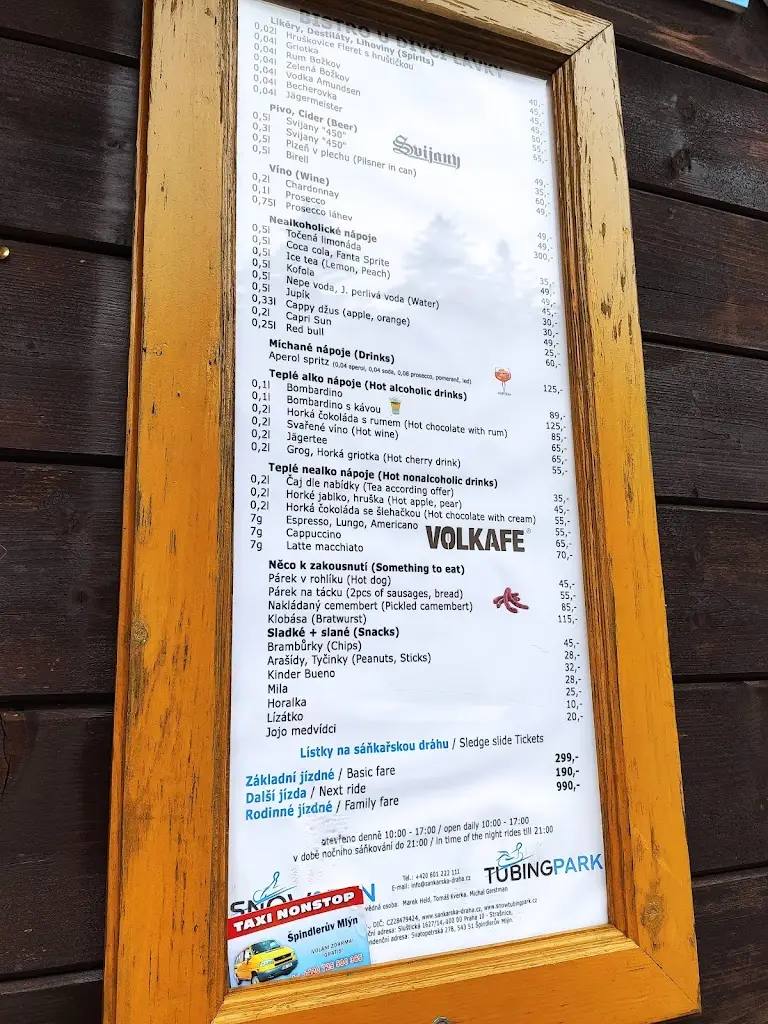 BISTRO U DÍVČÍ LÁVKY
Likéry, Destiláty, Lihoviny (Spirits)
0,02l Hruškovice Fleret s hruštičkou 40,-
0,04l Griotka 45,-
0,04l Rum Božkov 45,-
0,04l Zelená Božkov 45,-
0,04l Vodka Amundsen 50,-
0,04l Becherovka 55,-
0,04l Jägermeister 65,-
Pivo, Cider (Beer)
0,5l Svijany "450" 49,-
0,3l Svijany "450" 35,-
0,5l Plzeň v plechu (Pilsner in can) 60,-
0,5l Birell 49,-
Svijany
Víno (Wine)
0,2l Chardonnay 49,-
0,1l Prosecco 49,-
0,75l Prosecco láhev 300,-
Nealkoholické nápoje
0,5l Točená limonáda 35,-
0,5l Coca cola, Fanta Sprite 49,-
0,5l Ice tea (Lemon, Peach) 49,-
0,5l Kofola 45,-
0,5l Nepe voda, J. perlivá voda (Water) 30,-
0,5l Jupík 30,-
0,33l Cappy džus (apple, orange) 49,-
0,2l Capri Sun 25,-
0,25l Red bull 60,-
Míchané nápoje (Drinks)
Aperol spritz (0,04 aperol, 0,04 soda, 0,08 prosecco, pomeranč, led) 125,-
Teplé alko nápoje (Hot alcoholic drinks)
0,1l Bombardino 89,-
0,1l Bombardino s kávou 125,-
0,2l Horká čokoláda s rumem (Hot chocolate with rum) 85,-
0,2l Svařené víno (Hot wine) 65,-
0,2l Jägertee 65,-
0,2l Grog, Horká griotka (Hot cherry drink) 55,-
Teplé nealko nápoje (Hot nonalcoholic drinks)
0,2l Čaj dle nabídky (Tea according offer) 35,-
0,2l Horké jablko, hruška (Hot apple, pear) 45,-
0,2l Horká čokoláda se šlehačkou (Hot chocolate with cream) 55,-
7g Espresso, Lungo, Americano 55,-
7g Cappuccino 65,-
7g Latte macchiato 70,-
VOLKAFE
Něco k zakousnutí (Something to eat)
Párek v rohlíku (Hot dog) 45,-
Párek na tácku (2pcs of sausages, bread) 55,-
Nakládaný camembert (Pickled camembert) 85,-
Klobása (Bratwurst) 115,-
Sladké + slané (Snacks)
Brambůrky (Chips) 45,-
Arašídy, Tyčinky (Peanuts, Sticks) 28,-
Kinder Bueno 32,-
Mila 28,-
Horalka 25,-
Lízátko 10,-
Jojo medvídci 20,-
Lístky na sáňkařskou dráhu / Sledge slide Tickets
Základní jízdné / Basic fare 299,-
Další jízda / Next ride 190,-
Rodinné jízdné / Family fare 990,-
otevřeno denně 10:00 - 17:00 / open daily 10:00 - 17:00
v době nočního sáňkování do 21:00 / in time of the night rides till 21:00
Tel.: +420 601 222 111
E-mail: info@sankarska-draha.cz
TUBINGPARK
vědná osoba: Marek Held, Tomáš Kverka, Michal Gerstman
DIČ: CZ28479424, www.sankarska-draha.cz, www.snowtubingpark.cz
ční adresa: Sluštická 1627/14, 100 00 Praha 10 - Strašnice,
ndenční adresa: Svatopetrská 278, 543 51 Špindlerův Mlýn
TAXI NONSTOP
Špindlerův Mlýn